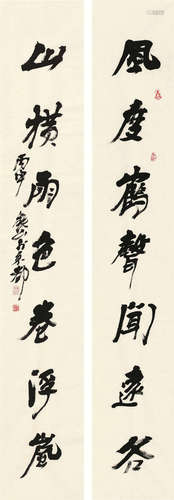 風度鶴聲聞遠谷
山橫雨色卷浮嵐
丙申